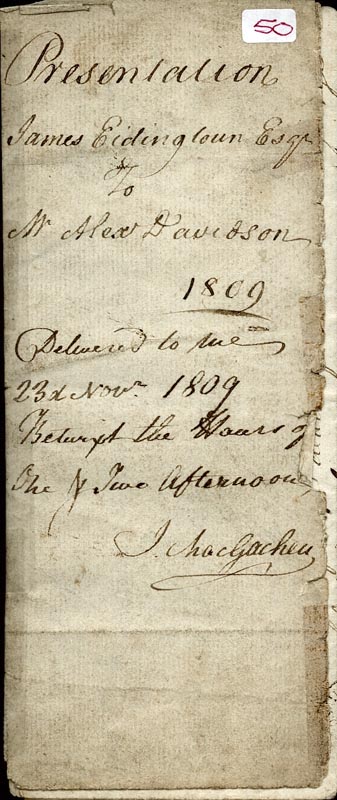 50
Presentation
James Eidingtoun Esqr
To
Mr Alexr Davidson
1809
Delivered to me
23d Novr. 1809
Betwixt the Hours of
One & Two Afternoon
J. MacGachen